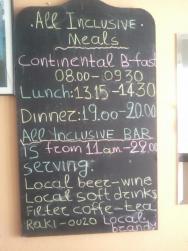 .All Inclusive.
Meals
Continental B-fast
08:00-09:30
Lunch:13.15-14.30
Dinner:19.00-20.00
All Inclusive BAR
is from 11am-22.00
serving:
Local beer-wine
Local soft drinks
Filter coffe-tea
Raki-ouzo Local brandy